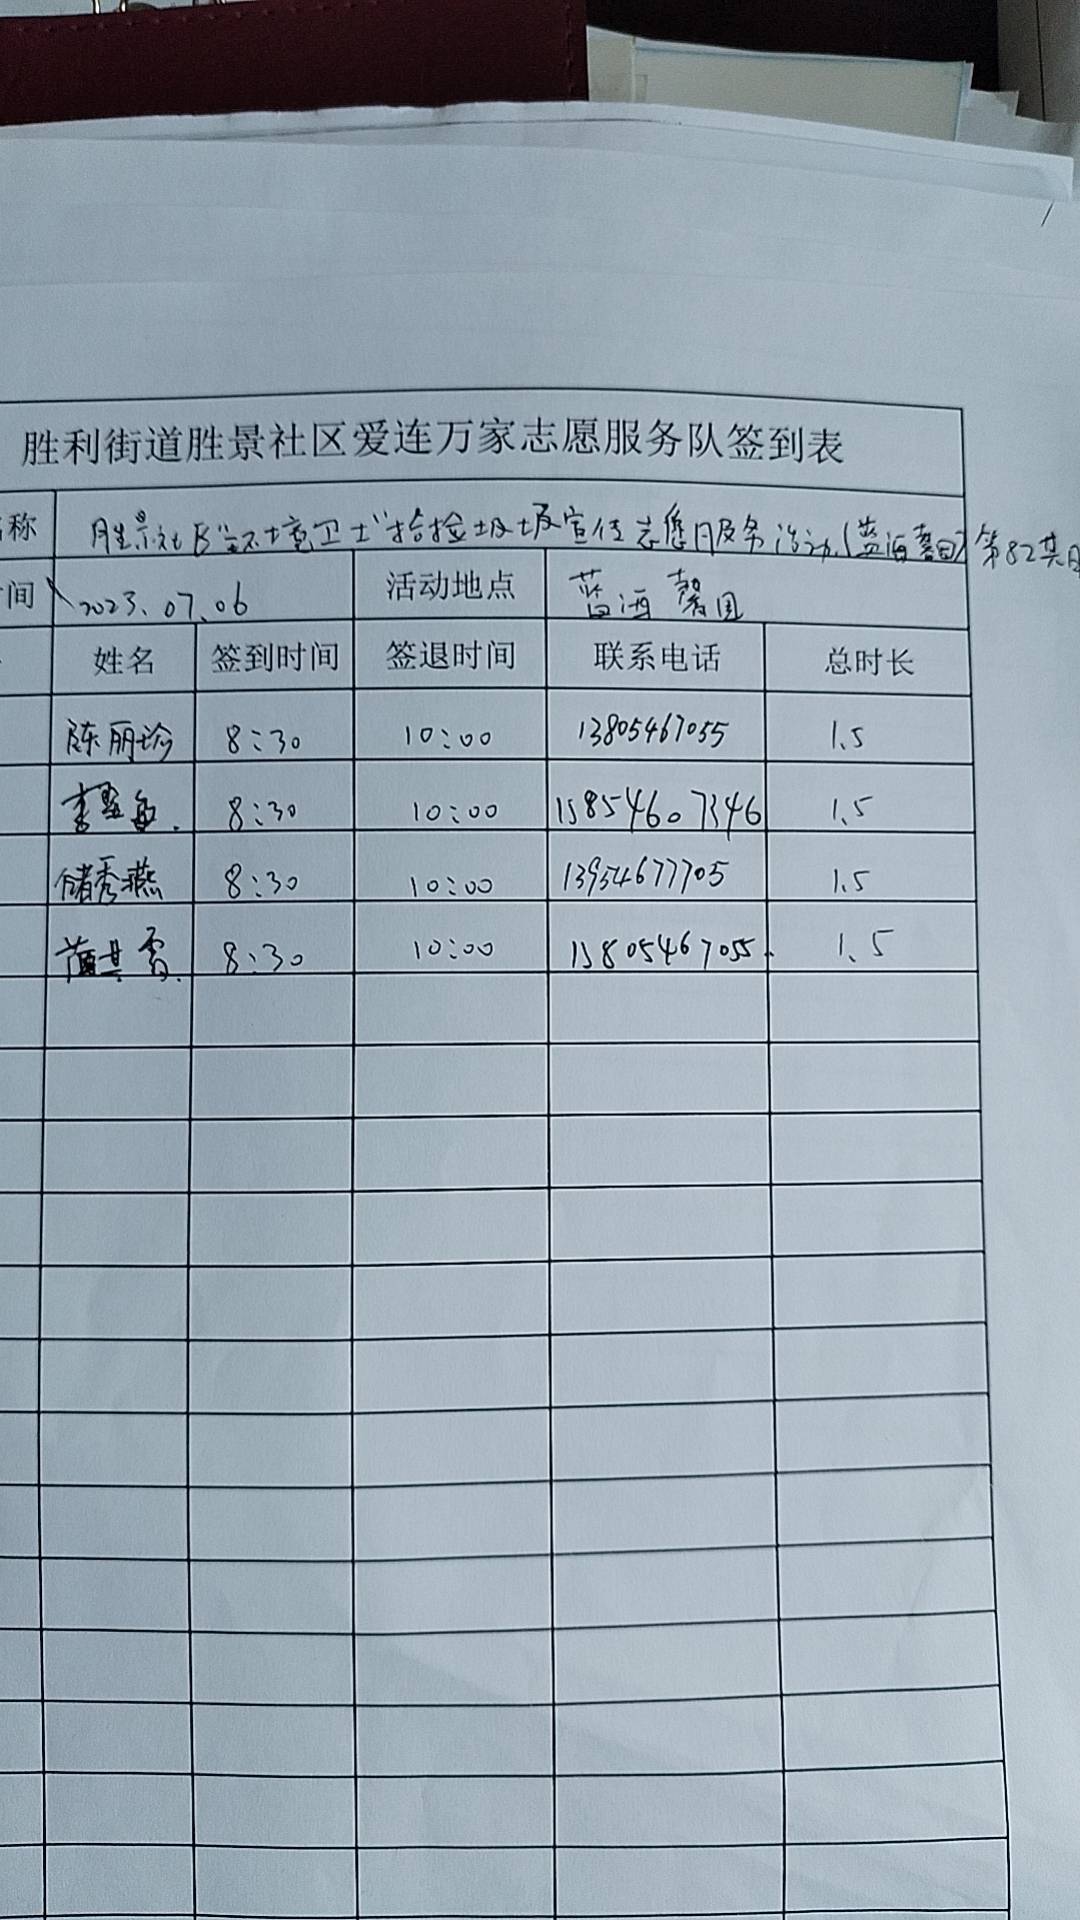 胜利街道胜景社区爱连万家志愿服务队签到表
称 胜景社区"环境卫士"捡捡垃圾宣传志愿服务活动(蓝海馨园)第82期
间 2023.07.06 活动地点 蓝海馨园
姓名 签到时间 签退时间 联系电话 总时长
陈丽珍 8:30 10:00 13805467055 1.5
8:30 10:00 15854607346 1.5
储秀燕 8:30 10:00 13954677705 1.5
8:30 10:00 15805467055 1.5